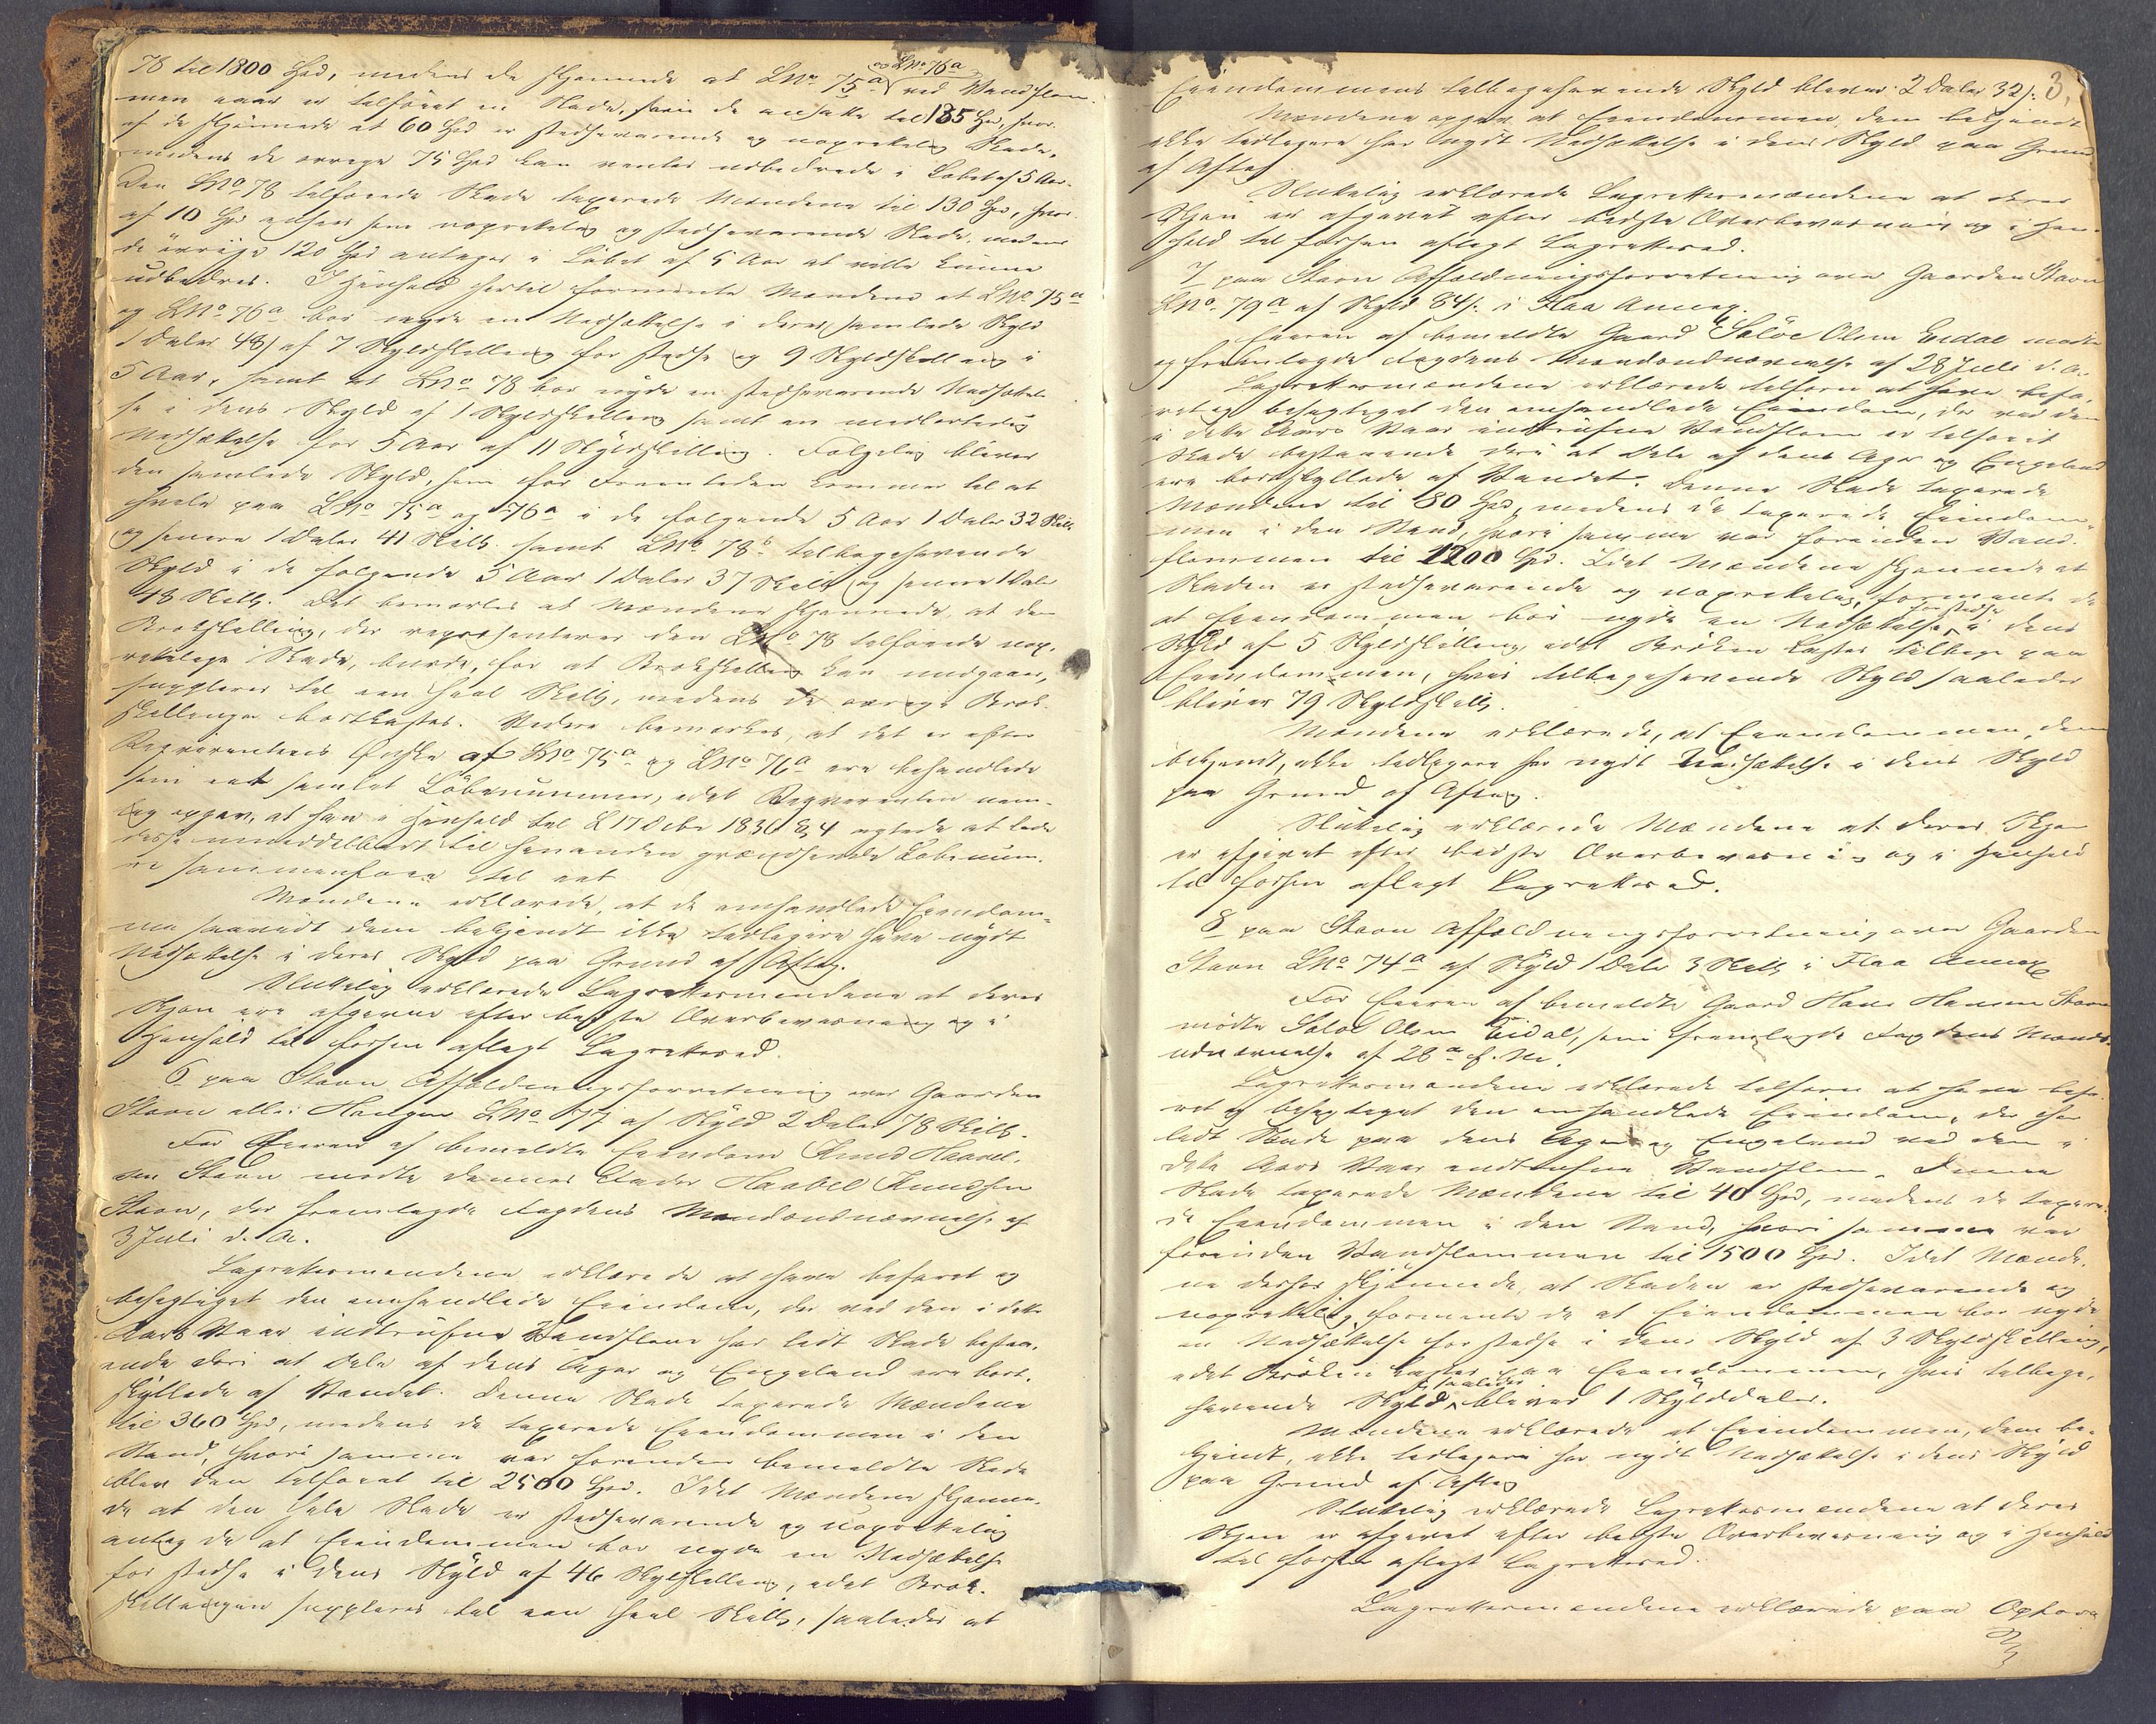 78 til 1800 Spd, medens de skjønnede at LNo 75a og LNo 76a ved Vandflom-
men aaar er tilføiet en Skade, som de ansatte til 135 Spd, hvor-
af de skjønnede at 60 Spd er stedsevarende og uoprettelig Skade,
medens de øvrige 75 Spd kan ventes udbedrede i Løbet af 5 Aar.
Den LNo 78 tilføiede Skade taxerede Mændene til 130 Spd, hvor-
af 10 Spd ansees som uoprettelig og stedsevarende Skade, medens
de øvrige 120 Spd antages i Løbet af 5 Aar at ville kunne
udbedres. I Henhold hertil formente Mændene at LNo 75a
og LNo 76a bør nyde en Nedsættelse i deres samlede Skyld
1 Daler 48 s af 7 Skyldskilling for stedse og 9 Skyldskilling i
5 Aar, samt at LNo 78 bør nyde en stedsevarende Nedsættel-
se i dens Skyld af 1 Skyldskilling samt en midlertidig
Nedsættelse for 5 Aar af 11 Skyldskilling. Følgelig bliver
den samlede Skyld, som for Fremtiden kommer til at
hvile paa LNo 75a og 76a i de følgende 5 Aar 1 Daler 32 Skill
og senere 1 Daler 41 Skill. samt LNo 78s tilbageværende
Skyld i de følgende 5 Aar 1 Daler 37 Skill og senere 1 Daler
48 Skill. Det bemærkes at Mændene skjønnede, at den
Brøkskilling, der repræsenterer den LNo 78 tilføiede uop-
rettelige Skade, burde, for at Brøkskilling kan undgaaes,
suppleres til een heel Skill, medens de øvrige Brøk-
skillinger bortkastes. Videre bemærkes, at det er efter
Reqvirentens Ønske at LNo 75a og LNo 76a ere behandlede
som eet samlet Løbenummer, idet Reqvirenten nem-
lig opgav, at han i Henhold til L 17 Decbr 1836 § 4 agtede at lade
disse umiddelbart til hinanden grændsende Løbenum-
re sammenføie til eet
Mændene erklærede, at de omhandlede Eiendom-
me saavidt dem bekjendt ikke tidligere have nydt
Nedsættelse i deres Skyld paa Grund af Aftag.
Sluttelig erklærede Lagrettesmændene at deres
Skjøn ere afgivne efter bedste Overbeviisning og i
Henhold til forhen aflagt Lagretteseed.
6 paa Stavn Affældningsforretning over Gaarden
Stavn eller Haugen LNo 77 af Skyld 2 Daler 78 Skill.
For Eieren af bemeldte Eiendom Knud Haavel-
sen Stavn mødte dennes Fader Haabel Knudsen
Stavn, der fremlagde Fogdens Mændsudnævnelse af
3 Juli d. A.
Lagrettesmændene erklærede at have befaret og
besigtiget den omhandlede Eiendom, der ved den i dette
Aars Vaar indtrufne Vandflom har lidt Skade bestaa-
ende deri at Dele af dens Ager og Engeland ere bort-
skyllede af Vandet. Denne Skade taxerede Mændene
til 360 Spd, medens de taxerede Eiendommen i den
Stand, hvori samme var forinden bemeldte Skade
blev den tilføiet til 2500 Spd. Idet Mændene skjønne-
de at den hele Skade er stedsevarende og uoprettelig
antog de at Eiendommen bør nyde en Nedsættelse
for stedse i dens Skyld af 46 Skyldskilling, idet Brøk-
skillingen suppleres til een heel Skill, saaledes at
3,
Eiendommens tilbageværende Skyld bliver 2 Daler 32 s.
Mændene opgav at Eiendommen, dem bekjendt
ikke tidligere har nydt Nedsættelse i dens Skyld paa Grund
af Aftag
Sluttelig erklærede Lagrettesmændene at deres
Skjøn er afgivet efter bedste Overbeviisning og i Hen-
hold til forhen aflagt Lagretteseed.
7 paa Stavn Affældningsforretning over Gaarden Stavn
LNo. 79a af Skyld 84 s. i Flaa Annex.
Eieren af bemeldte Gaard Søløe Olsen Eidal mødte
og fremlagde Fogdens Mændsudnævnelse af 28 Juli d. A.
Lagrettesmændene erklærede tilforn at have befa-
ret og besigtiget den omhandlede Eiendom, der ved den
i dette Aars Vaar indtrufne Vandflom er tilføiet
Skade bestaaende deri at Dele af dens Ager og Engeland
ere bortskyllede af Vandet. Denne Skade taxerede
Mændene til 80 Spd, medens de taxerede Eiendom-
men i den Stand, hvori samme var forinden Vand-
flommen til 1200 Spd. Idet Mændene skjønnede at
Skaden er stedsevarende og uoprettelig, formente de
at Eiendommen bør nyde en Nedsættelse for stedse i dens
Skyld af 5 Skyldskilling, idet Brøken kastes tilbage paa
Eiendommen, hvis tilbageværende Skyld saaledes
bliver 79 Skyldskill.
Mændene erklærede, at Eiendommen, dem
bekjendt, ikke tidligere har nydt Nedsættelse i dens Skyld
paa Grund af Aftag.
Sluttelig erklærede Mændene at deres Skjøn
er afgivet efter bedste Overbeviisning og i Henhold
til forhen aflagt Lagretteseed.
8 paa Stavn Affældningsforretning over Gaarden
Stavn LNo 74a af Skyld 1 Daler 3 Skill i Flaa Annex
For Eieren af bemeldte Gaard Hans Hansen Stavn
mødte Søloe Olsen Eidal, som fremlagde Fogdens Mænds-
udnævnelse af 28de f. M.
Lagrettesmændene erklærede tilforn at have befa-
ret og besigtiget den omhandlede Eiendom, der har
lidt Skade paa dens Ager og Engeland ved den i
dette Aars Vaar indtrufne Vandflom. Denne
Skade taxerede Mændene til 40 Spd, medens de taxere-
de Eiendommen i den Stand, hvori samme var
forinden Vandflommen til 1500 Spd. Idet Mænde-
ne derhos skjønnede, at Skaden er stedsevarende og
uoprettelig, formente de at Eiendommen bør nyde
en Nedsættelse for stedse i dens Skyld af 3 Skyldskilling,
idet Brøken kastes paa Eiendommen, hvis tilbage-
værende Skyld saaledes bliver 1 Skylddaler.
Mændene erklærede at Eiendommen, dem be-
kjendt, ikke tidligere har nydt Nedsættelse i dens Skyld
paa Grund af Aftag
Sluttelig erklærede Lagrettesmændene at deres
Skjøn er afgivet efter bedste Overbeviisning og i Henhold
til forhen aflagt Lagretteseed.
Lagrettesmændene erklærede paa Opfor-